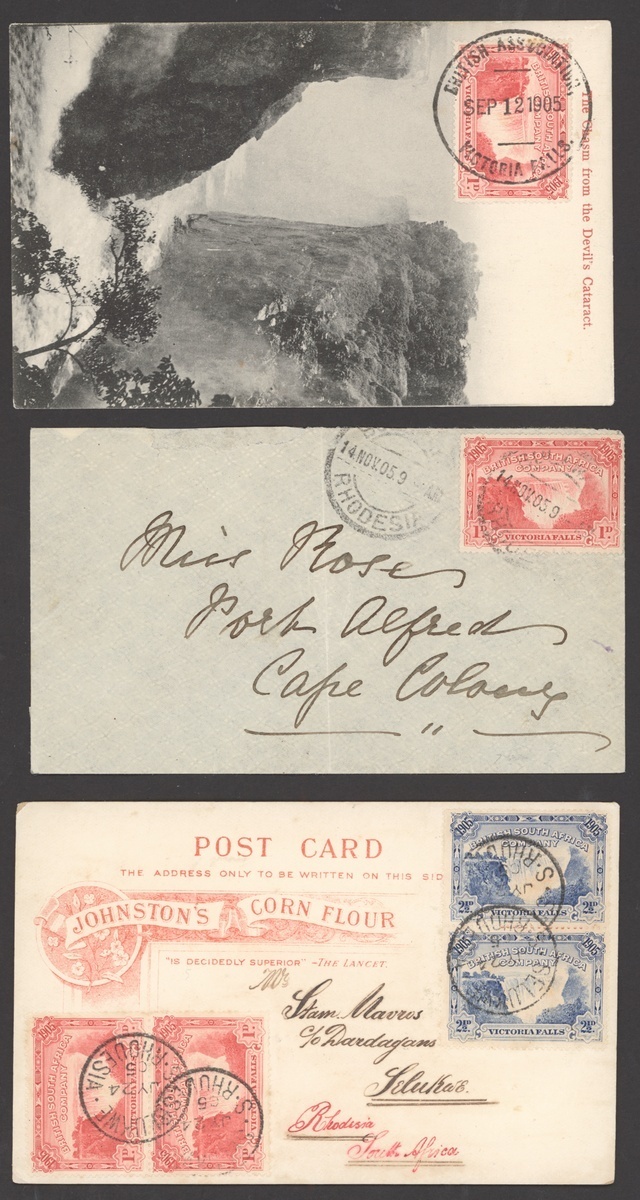 BRITISH ASSOCIATION
SEP 12 1905
VICTORIA FALLS.
1905
1D
The Chasm from the Devil's Cataract.
14 NOV.05.9
RHODESIA
1905 1905
BRITISH SOUTH AFRICA
COMPANY
14 NOV.05.9
1D 1D
VICTORIA FALLS
Miss Rose
Port Alfred
Cape Colony
POST CARD
THE ADDRESS ONLY TO BE WRITTEN ON THIS SID
JOHNSTON'S CORN FLOUR
"IS DECIDEDLY SUPERIOR" -THE LANCET.
1905 1905
BRITISH SOUTH AFRICA
COMPANY
S. RHOD
2½D 2½D
VICTORIA FALLS
1905 1905
BRITISH SOUTH AFRICA
COMPANY
2½D 2½D
VICTORIA FALLS
Stam. Mavros
c/o Dardagans
Selukwe.
Rhodesia
South Africa
BRITISH SOUTH AFRICA
COMPANY
1905
1D
RHODESIA
JY 24
1D
S. RHOD